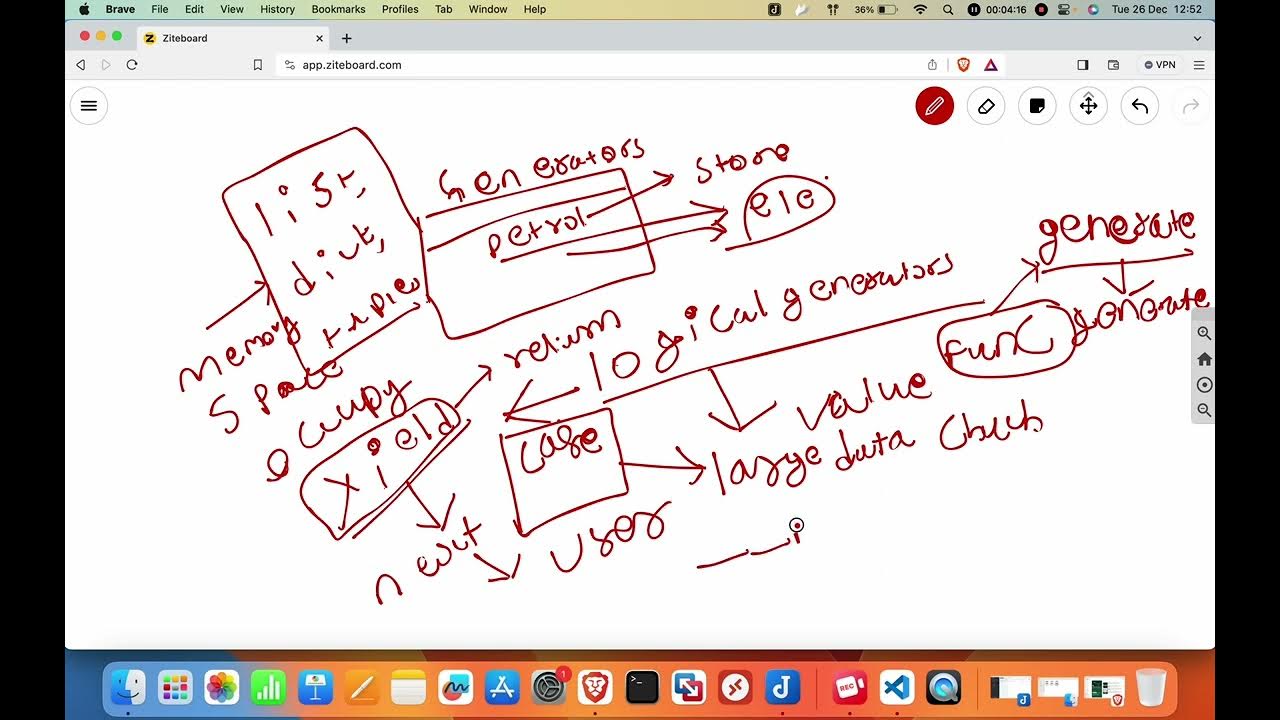 Brave File Edit View History Bookmarks Profiles Tab Window Help
36% 00:04:16 Tue 26 Dec 12:52
Ziteboard
app.ziteboard.com
VPN
Generators
store
list,
petrol
ele
generate
dict,
generate
tuples
logical generators
func
memory
return
space
value
occupy
yield
case
large data chunks
next
user
__i
REC
1